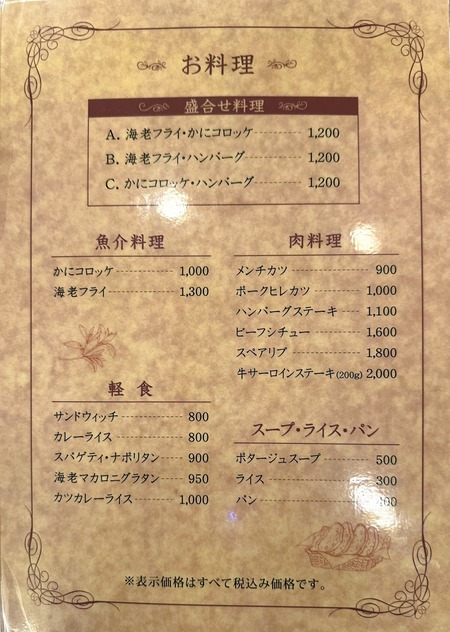 お料理
盛合せ料理
A. 海老フライ・かにコロッケ 1,200
B. 海老フライ・ハンバーグ 1,200
C. かにコロッケ・ハンバーグ 1,200
魚介料理
かにコロッケ 1,000
海老フライ 1,300
軽 食
サンドウィッチ 800
カレーライス 800
スパゲティ・ナポリタン 900
海老マカロニグラタン 950
カツカレーライス 1,000
肉料理
メンチカツ 900
ポークヒレカツ 1,000
ハンバーグステーキ 1,100
ビーフシチュー 1,600
スペアリブ 1,800
牛サーロインステーキ(200g) 2,000
スープ・ライス・パン
ポタージュスープ 500
ライス 300
パン
※表示価格はすべて税込み価格です。